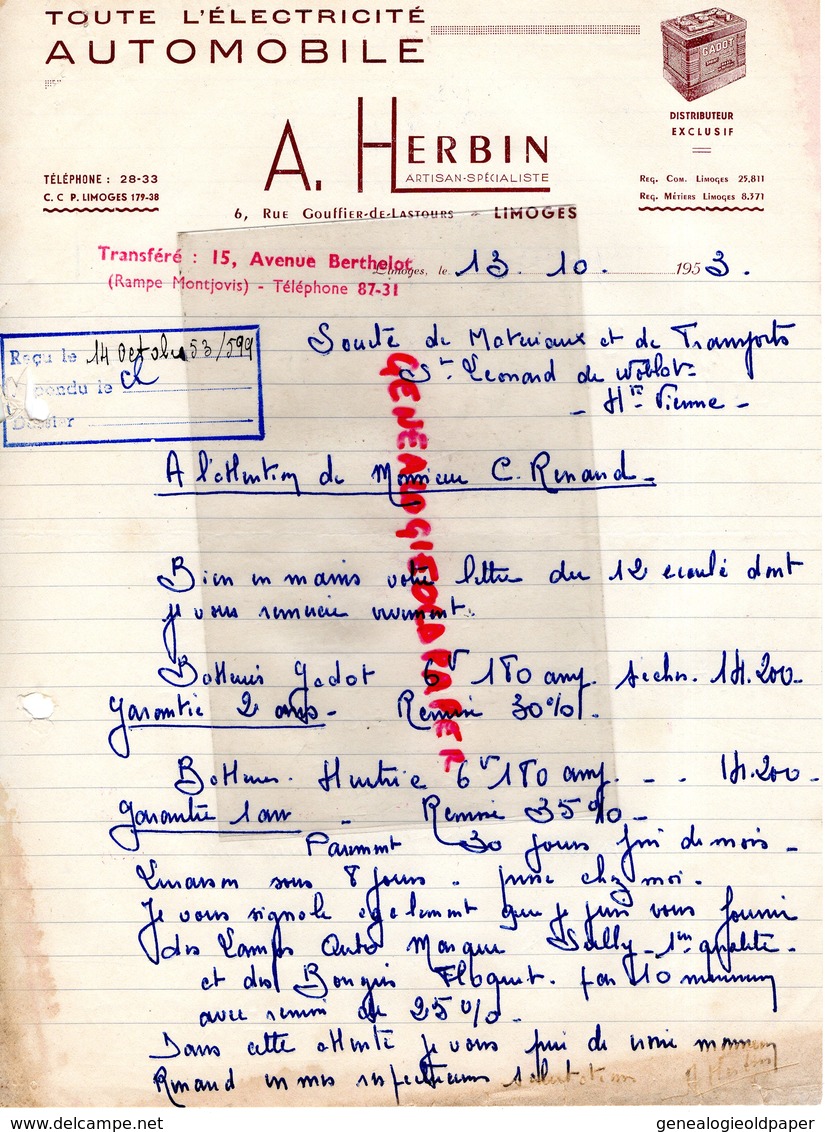 TOUTE L'ÉLECTRICITÉ
AUTOMOBILE
GADOT
DISTRIBUTEUR
EXCLUSIF
A. HERBIN
ARTISAN-SPÉCIALISTE
TÉLÉPHONE : 28-33
C. C P. LIMOGES 179-38
Reg. Com. Limoges 25.811
Reg. Métiers Limoges 8.371
6, Rue Gouffier-de-Lastours - LIMOGES
Transféré : 15, Avenue Berthelot
(Rampe Montjovis) - Téléphone 87-31
Limoges, le 13. 10. 1953.
Reçu le 14 Octobre 53/599
Répondu le
Dossier
Société de Materiaux et de Transports
St Leonard de Noblat-
- Hte Vienne -
A l'attention de Monsieur C. Renaud-
GENEALOGIEOLDPAPER
Bien en mains votre lettre du 12 ecoulé dont
je vous remercie vivement.
Batteries Gadot 6v 180 amp. seches. 14.200-
Garantie 2 ans- Remise 30%.
Batteries. 6v 180 amp. - - 14.200-
Garantie 1 an - Remise 35%-
Paiement 30 jours fin de mois-
Livraison sous 8 jours. prise chez moi.
Je vous signale egalement que je puis vous fournir
des Lampes Auto Marque Sully- 1re qualité.
et des Bougies Floquet. par 10 minimum
avec remise de 25%-
Dans cette attente je vous prie de croire monsieur
Renaud en mes respectueuses salutations
A Herbin
genealogieoldpaper